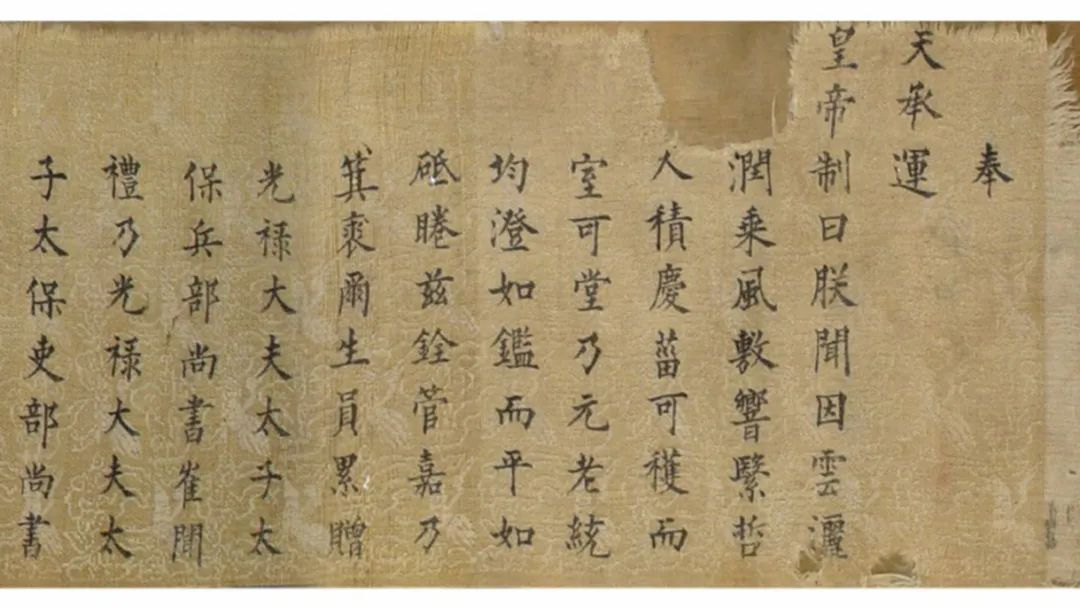 奉
天承運
皇帝制曰朕聞因雲灑
潤乘風敷響緊哲
人積慶菑可穫而
室可堂乃元老統
均澄如鑑而平如
砥睠茲銓管嘉乃
箕裘爾生員累贈
光禄大夫太子太
保兵部尚書崔聞
禮乃光禄大夫太
子太保吏部尚書